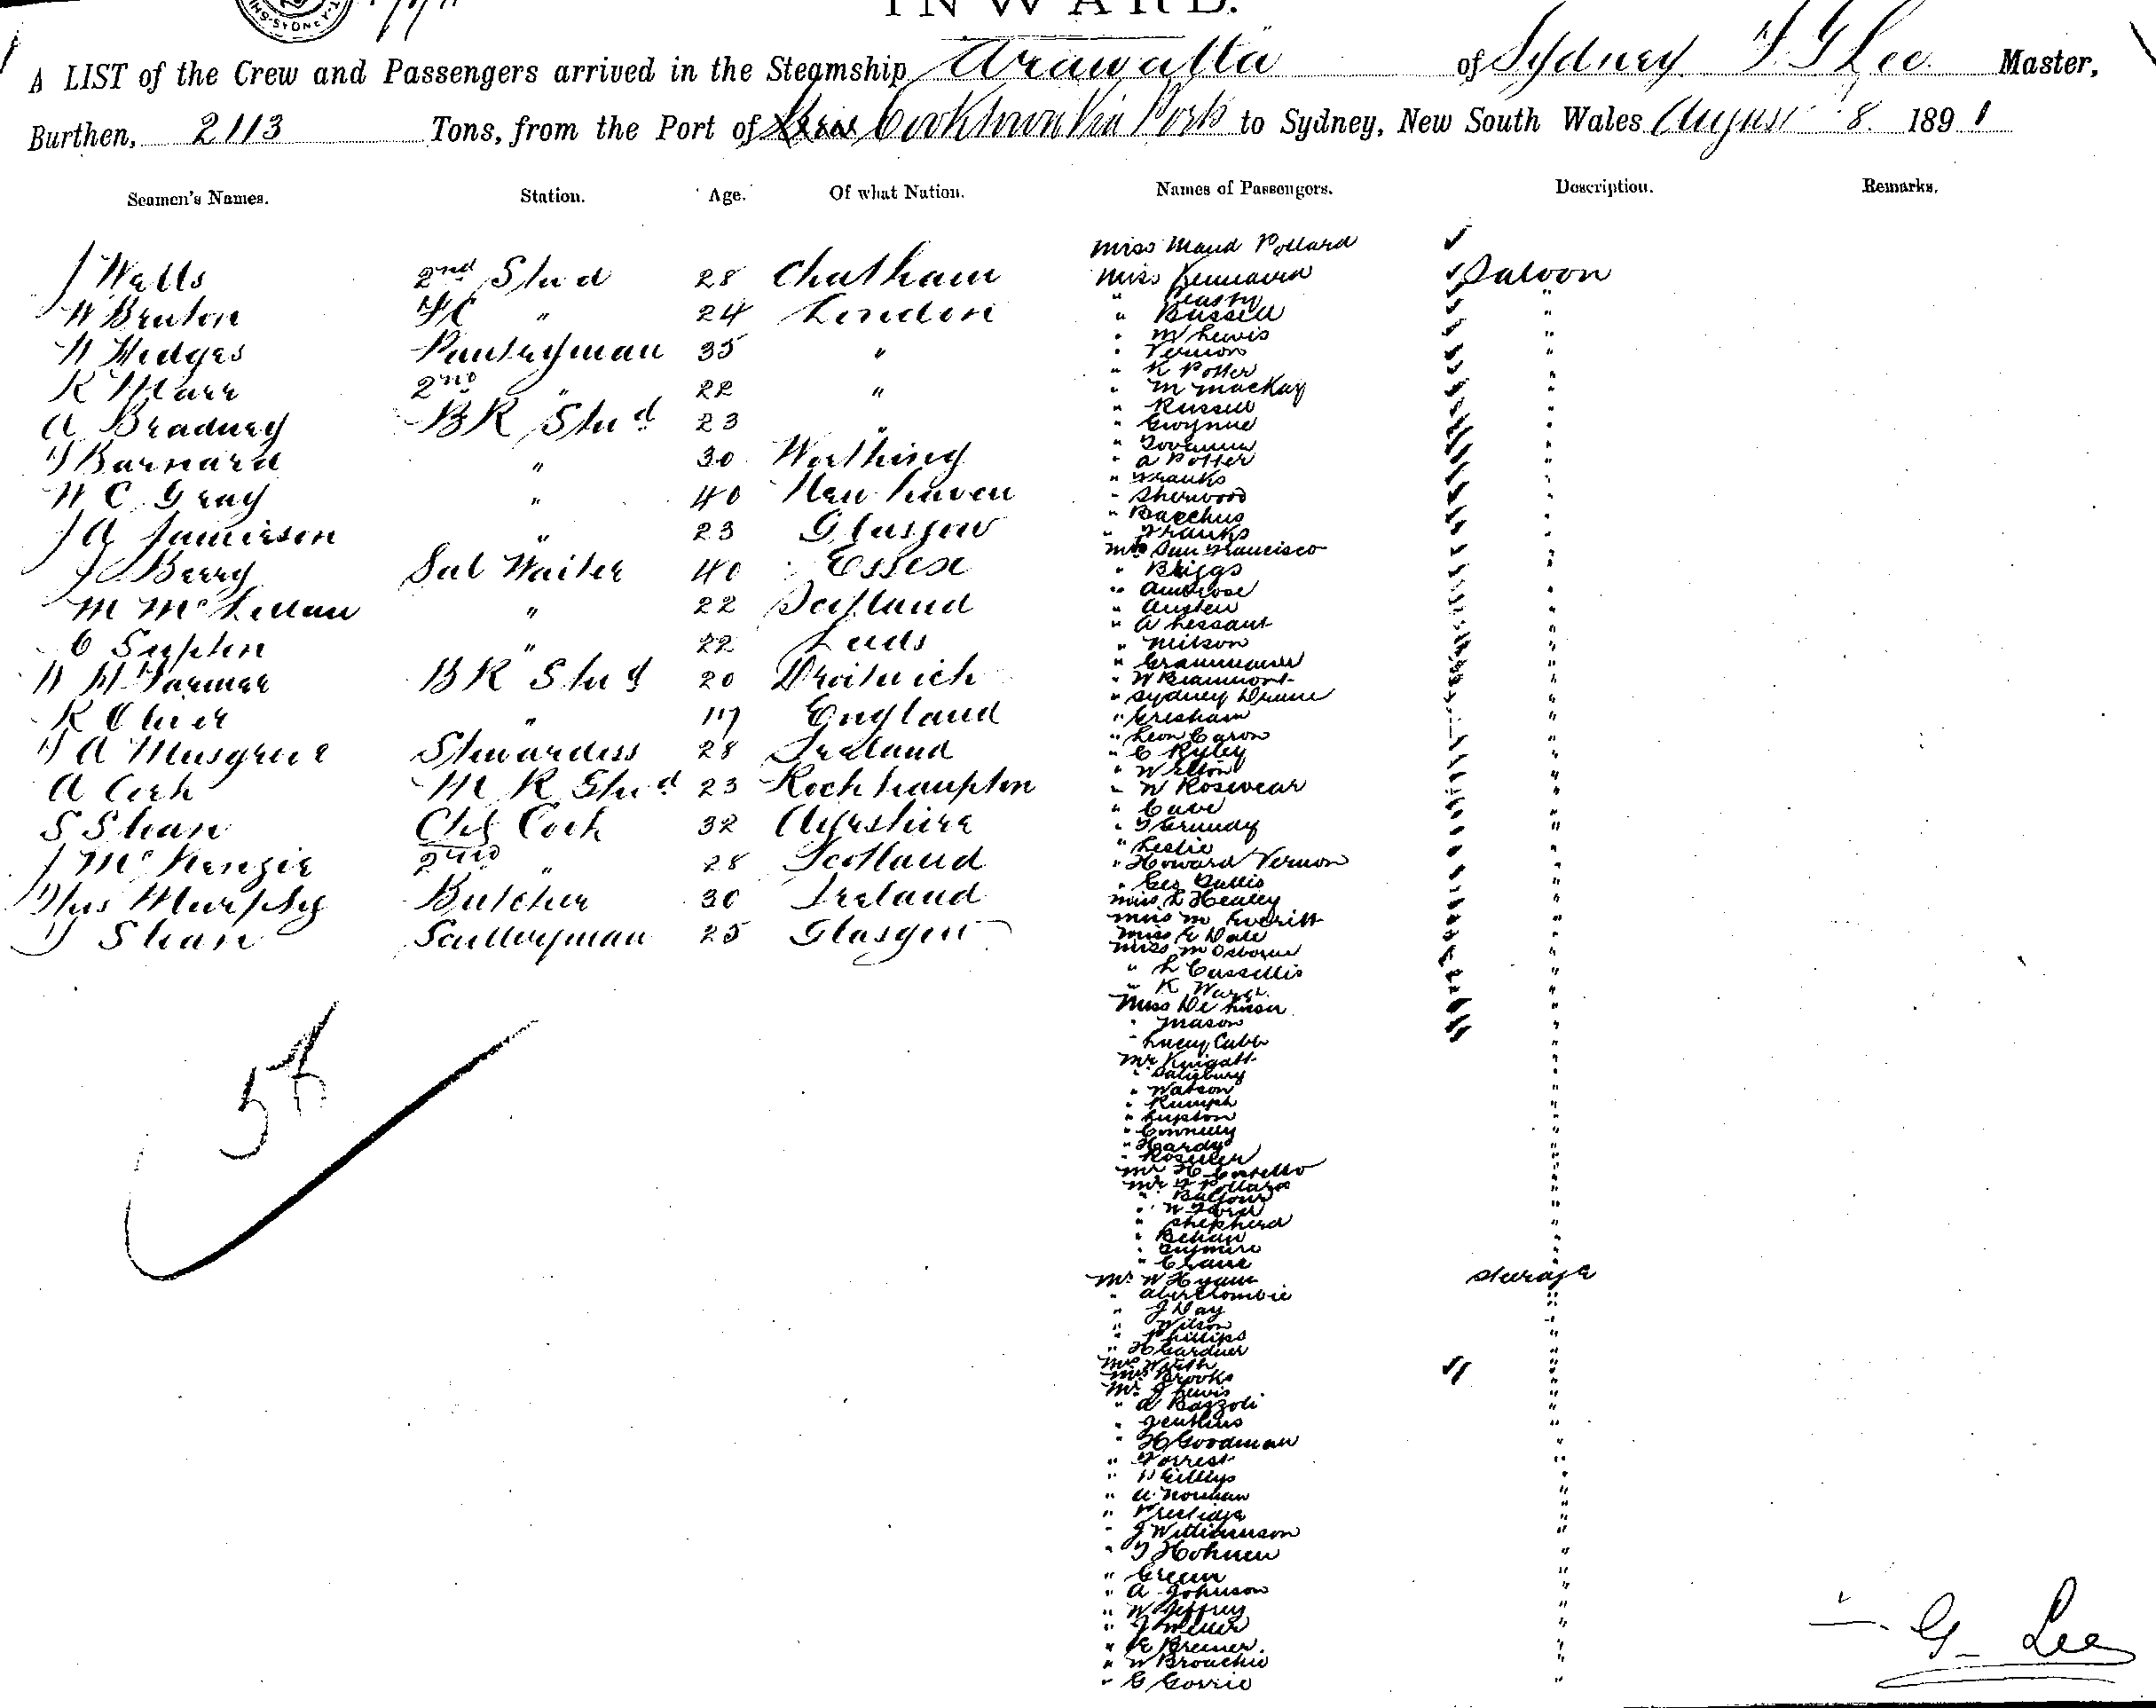 INWARD.
A LIST of the Crew and Passengers arrived in the Steamship Arawatta of Sydney G Lee Master,
Burthen, 2113 Tons, from the Port of Cooktown via Ports to Sydney, New South Wales August 8 1891
Seamen's Names. Station. Age. Of what Nation. Names of Passengers. Description. Remarks.
J Walls 2nd Stud 28 Chatham
W Bruton FC " 24 London
W Hedges Pantryman 35 "
R Marr 2nd " 22 "
A Bradney BR Stud 23 "
F Barnard " 30 Worthing
W C Gray " 40 New haven
J A Jamieson " 23 Glasgow
J Berry Sal Waiter 40 Essex
M McLellan " 22 Scotland
C " 22 Leeds
W H Farmer BR Stud 20 Droitwich
R Oliver " 17 England
A Musgrave Stewardess 28 Ireland
A M R Stud 23 Rockhampton
S Shaw Chf Cook 32 Ayrshire
J McKenzie 2nd " 28 Scotland
Thos Murphy Butcher 30 Ireland
Shaw Sculleryman 25 Glasgow
Miss Maud Pollard
Miss Saloon
"
" Russell "
" M Lewis "
" Vernon "
" K Potter "
" M Mackay "
" Russell "
" Gwynne "
"
" A Potter "
" Franks "
" Sherwood "
" Bacchus "
" Franks "
San Francisco "
" Briggs "
" Ambrose "
" Austen "
" A Lessant "
" Neilson "
"
" W Beaumont "
" Sydney Deane "
" Gresham "
" Leon Caron "
" C Ryley "
" Wilton "
" W Rosevear "
" Cave "
" T Grundy "
" Leslie "
" Howard Vernon "
" Geo Bullis "
Miss L Healey "
Miss M Everitt "
Miss E Dale "
Miss M Osborne "
" L Cassellis "
" K Ward "
Miss De "
" Mason "
" Lucy Cobb "
Mr Knigatt "
" Salisbury "
" Watson "
" Rumph "
" Lupton "
" Connelly "
" Hardy "
"
Mr H Costello "
Mr F Pollard "
" Balfour "
" W Ford "
" Shepherd "
" Behan "
"
" Crane "
Mr W Hyam Steerage
" Abercrombie "
" J Day "
" Wilson "
" Phillips "
" H Gardner "
Mrs Wirth "
Mrs Brooks "
Mr J Lewis "
" A Bazzoli "
" Jenkins "
" H Goodman "
" Forrest "
"
" A Norman "
" Prestidge "
" J Williamson "
" T Hohnen "
" Green "
" A Johnson "
" W Jeffrey "
" J "
" E Bremer "
" W Brouchie "
" G Gorrie "
54
G Lee